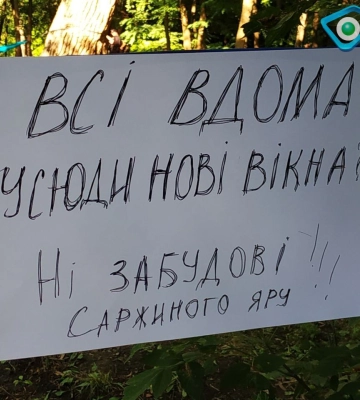 ВСІ ВДОМА
УСЮДИ НОВІ ВІКНА?
НІ ЗАБУДОВІ
САРЖИНОГО ЯРУ!!!